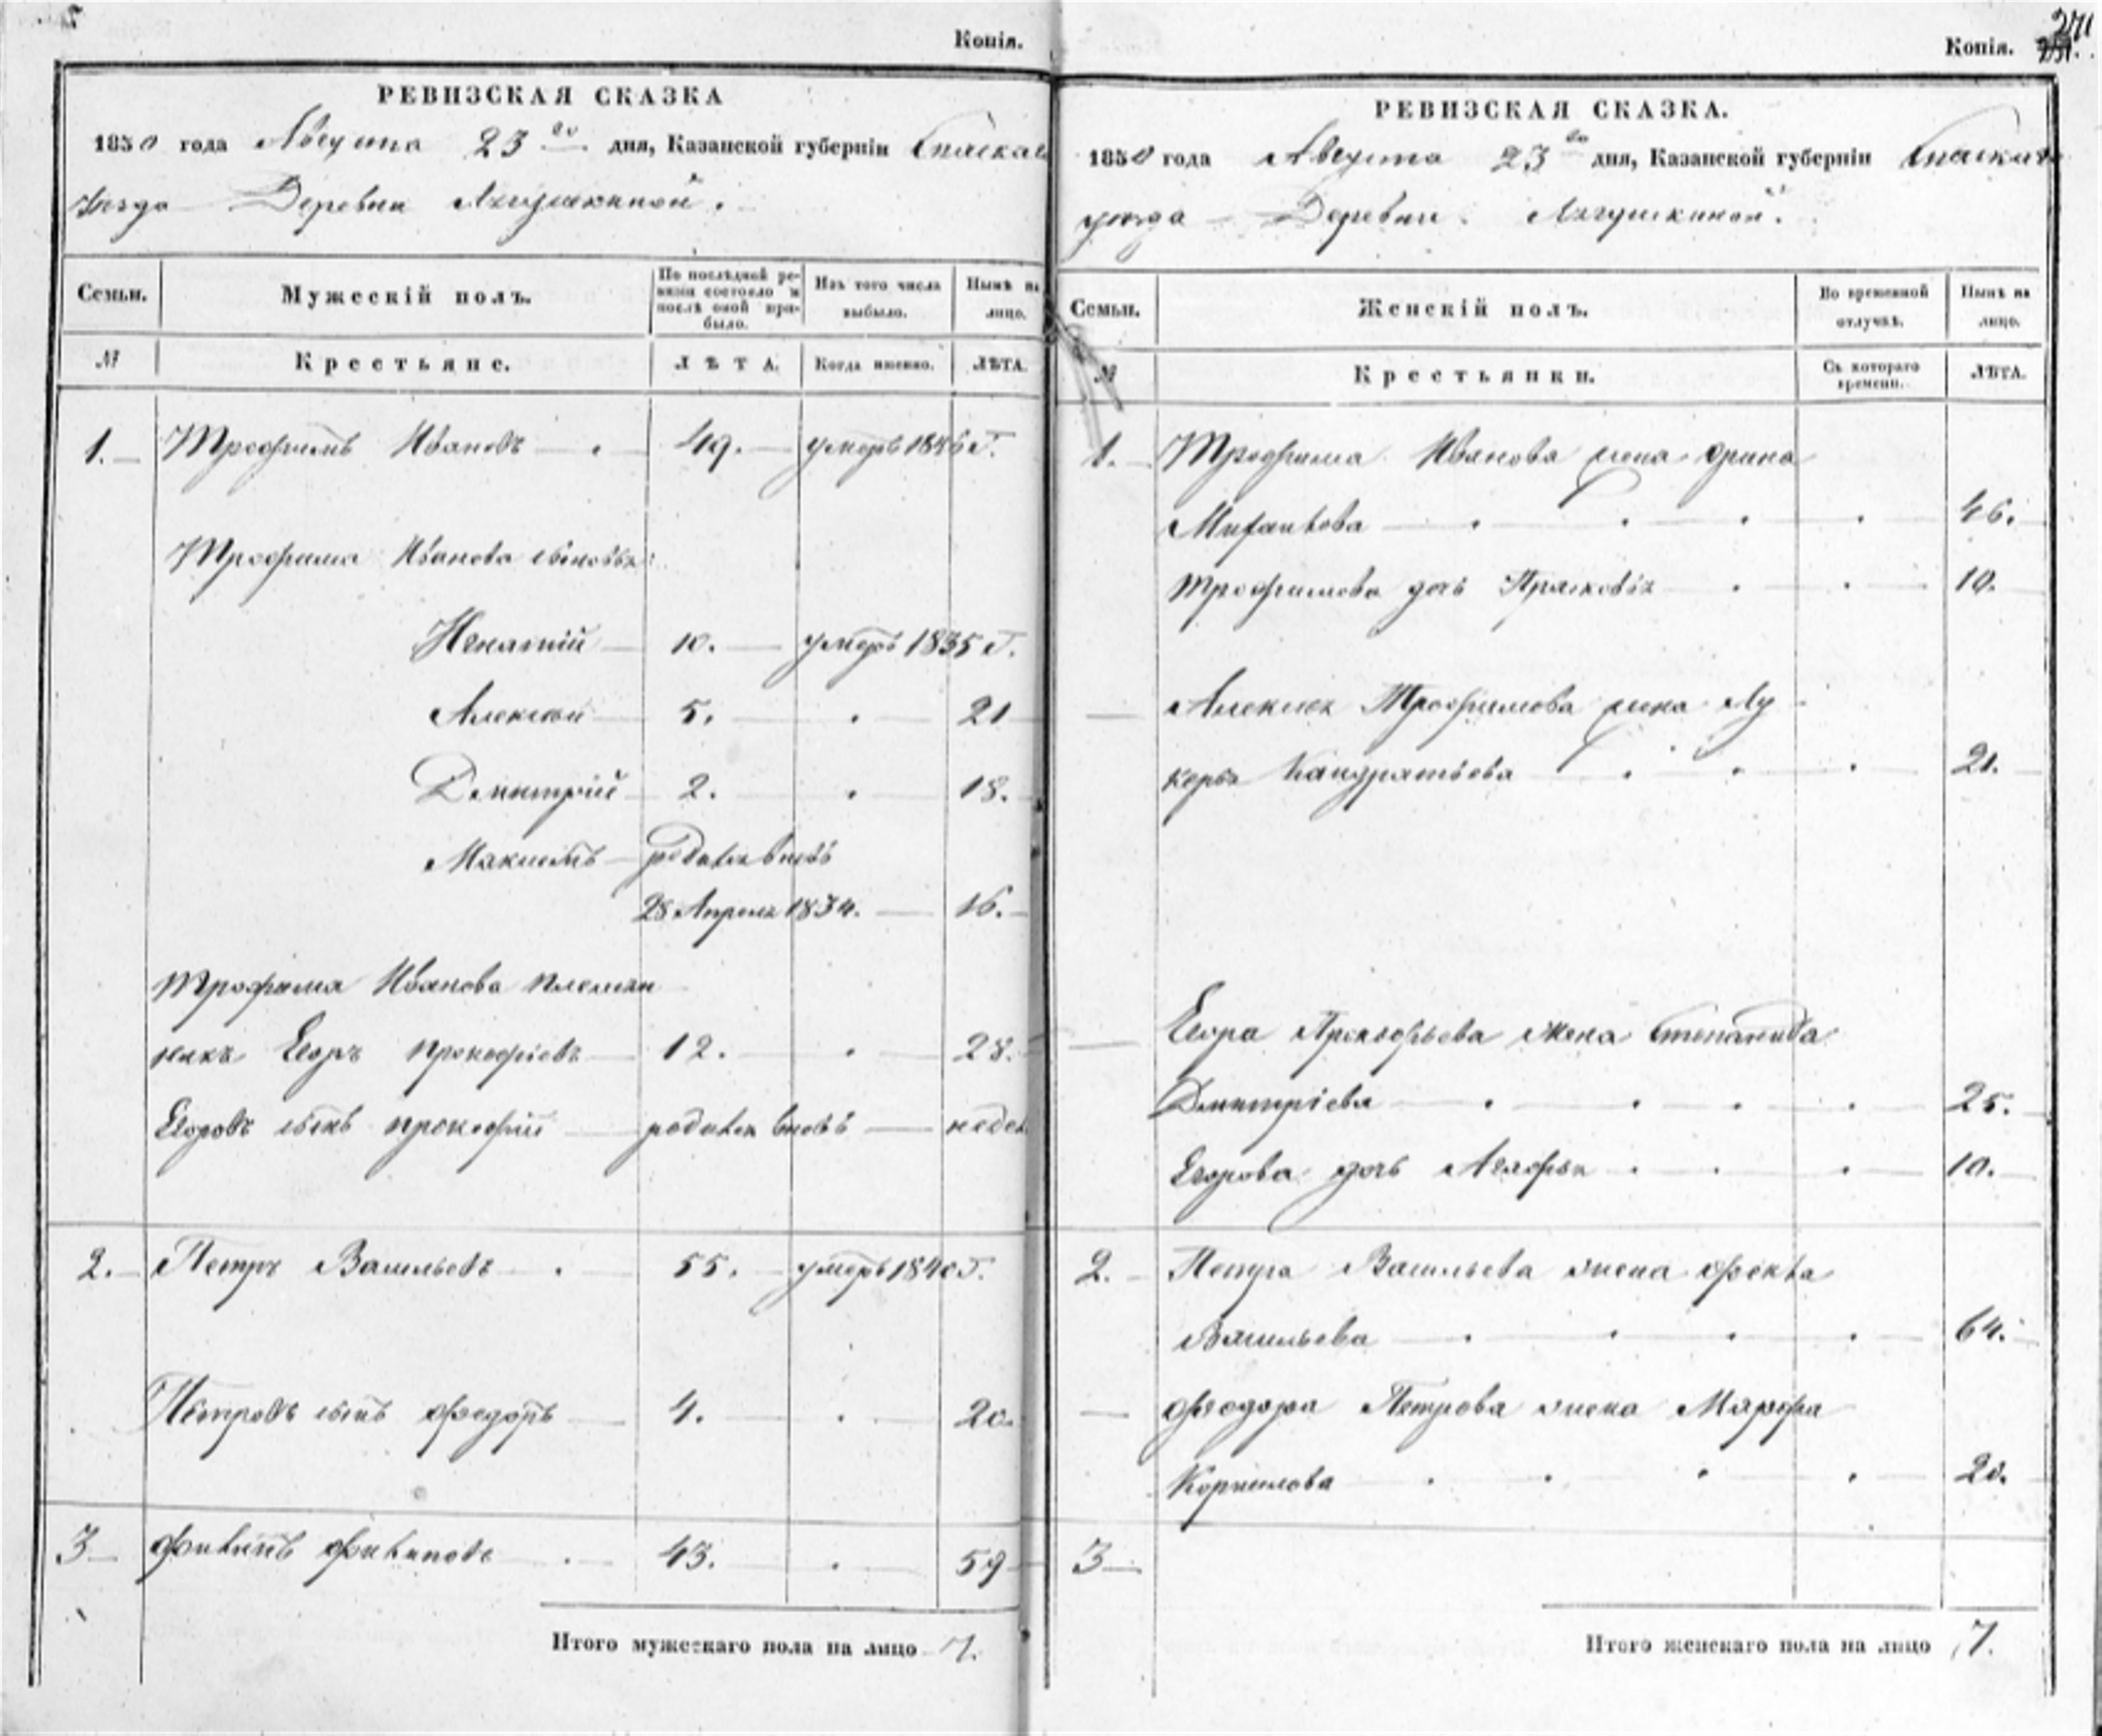 Копія.
РЕВИЗСКАЯ СКАЗКА
1850 года Августа 23го дня, Казанской губерніи Спаскаго
уезда Деревни Лягушкиной.
Семьи.
Мужескій полъ.
По послѣдней ре-
визіи состояло и
послѣ оной при-
было.
Изъ того числа
выбыло.
Нынѣ на
лицо.
№
Крестьяне.
ЛѢТА.
Когда именно.
ЛѢТА.
1. Трофимъ Ивановъ 49. умеръ 1846 г.
Трофима Иванова сыновья:
10. умеръ 1835 г.
Алексей 5. 21
Дмитрій 2. 18.
Максимъ родился вновь
28 Апреля 1834. 16.
Трофима Иванова племян
никъ Егоръ Прокофіевъ 12. 28.
Егоровъ сынъ Прокофій родился вновь недел
2. Петръ Васильевъ 55. умеръ 1840 г.
Петровъ сынъ Федоръ 4. 20.
3 Филипъ Филиповъ 43. 59
Итого мужескаго пола на лицо 7.
Копія.
271
РЕВИЗСКАЯ СКАЗКА.
1850 года Августа 23го дня, Казанской губерніи Спаскаго
уезда Деревни Лягушкиной.
Семьи.
Женскій полъ.
Во временной
отлучкѣ.
Нынѣ на
лицо.
№
Крестьянки.
Съ котораго
времени.
ЛѢТА.
1. Трофима Иванова жена Орина
Михайлова 46.
Трофимова дочь Прасковья 10.
Алексея Трофимова жена Лу
керья Кандратьева 21.
Егора Прокофьева жена Степанида
Дмитріева 25.
Егорова дочь Агафья 10.
2. Петра Васильева жена Фекла
Васильева 64.
Феодора Петрова жена Марфа
Корнилова 20.
3
Итого женскаго пола на лицо 7.